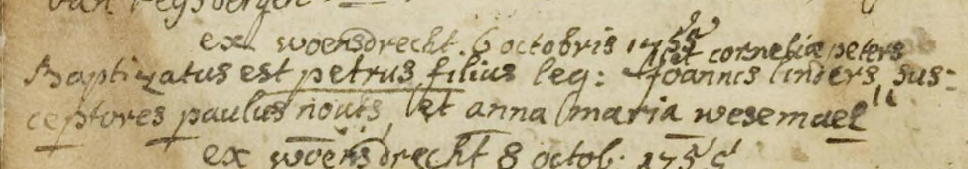 van
ex woensdrecht. 6 octobris
et corneliæ peters
Baptizatus est petrus filius leg: Joannis linders, sus-
ceptores paulus nouts, et anna maria wesemael
ex woensdrecht 8 octob.